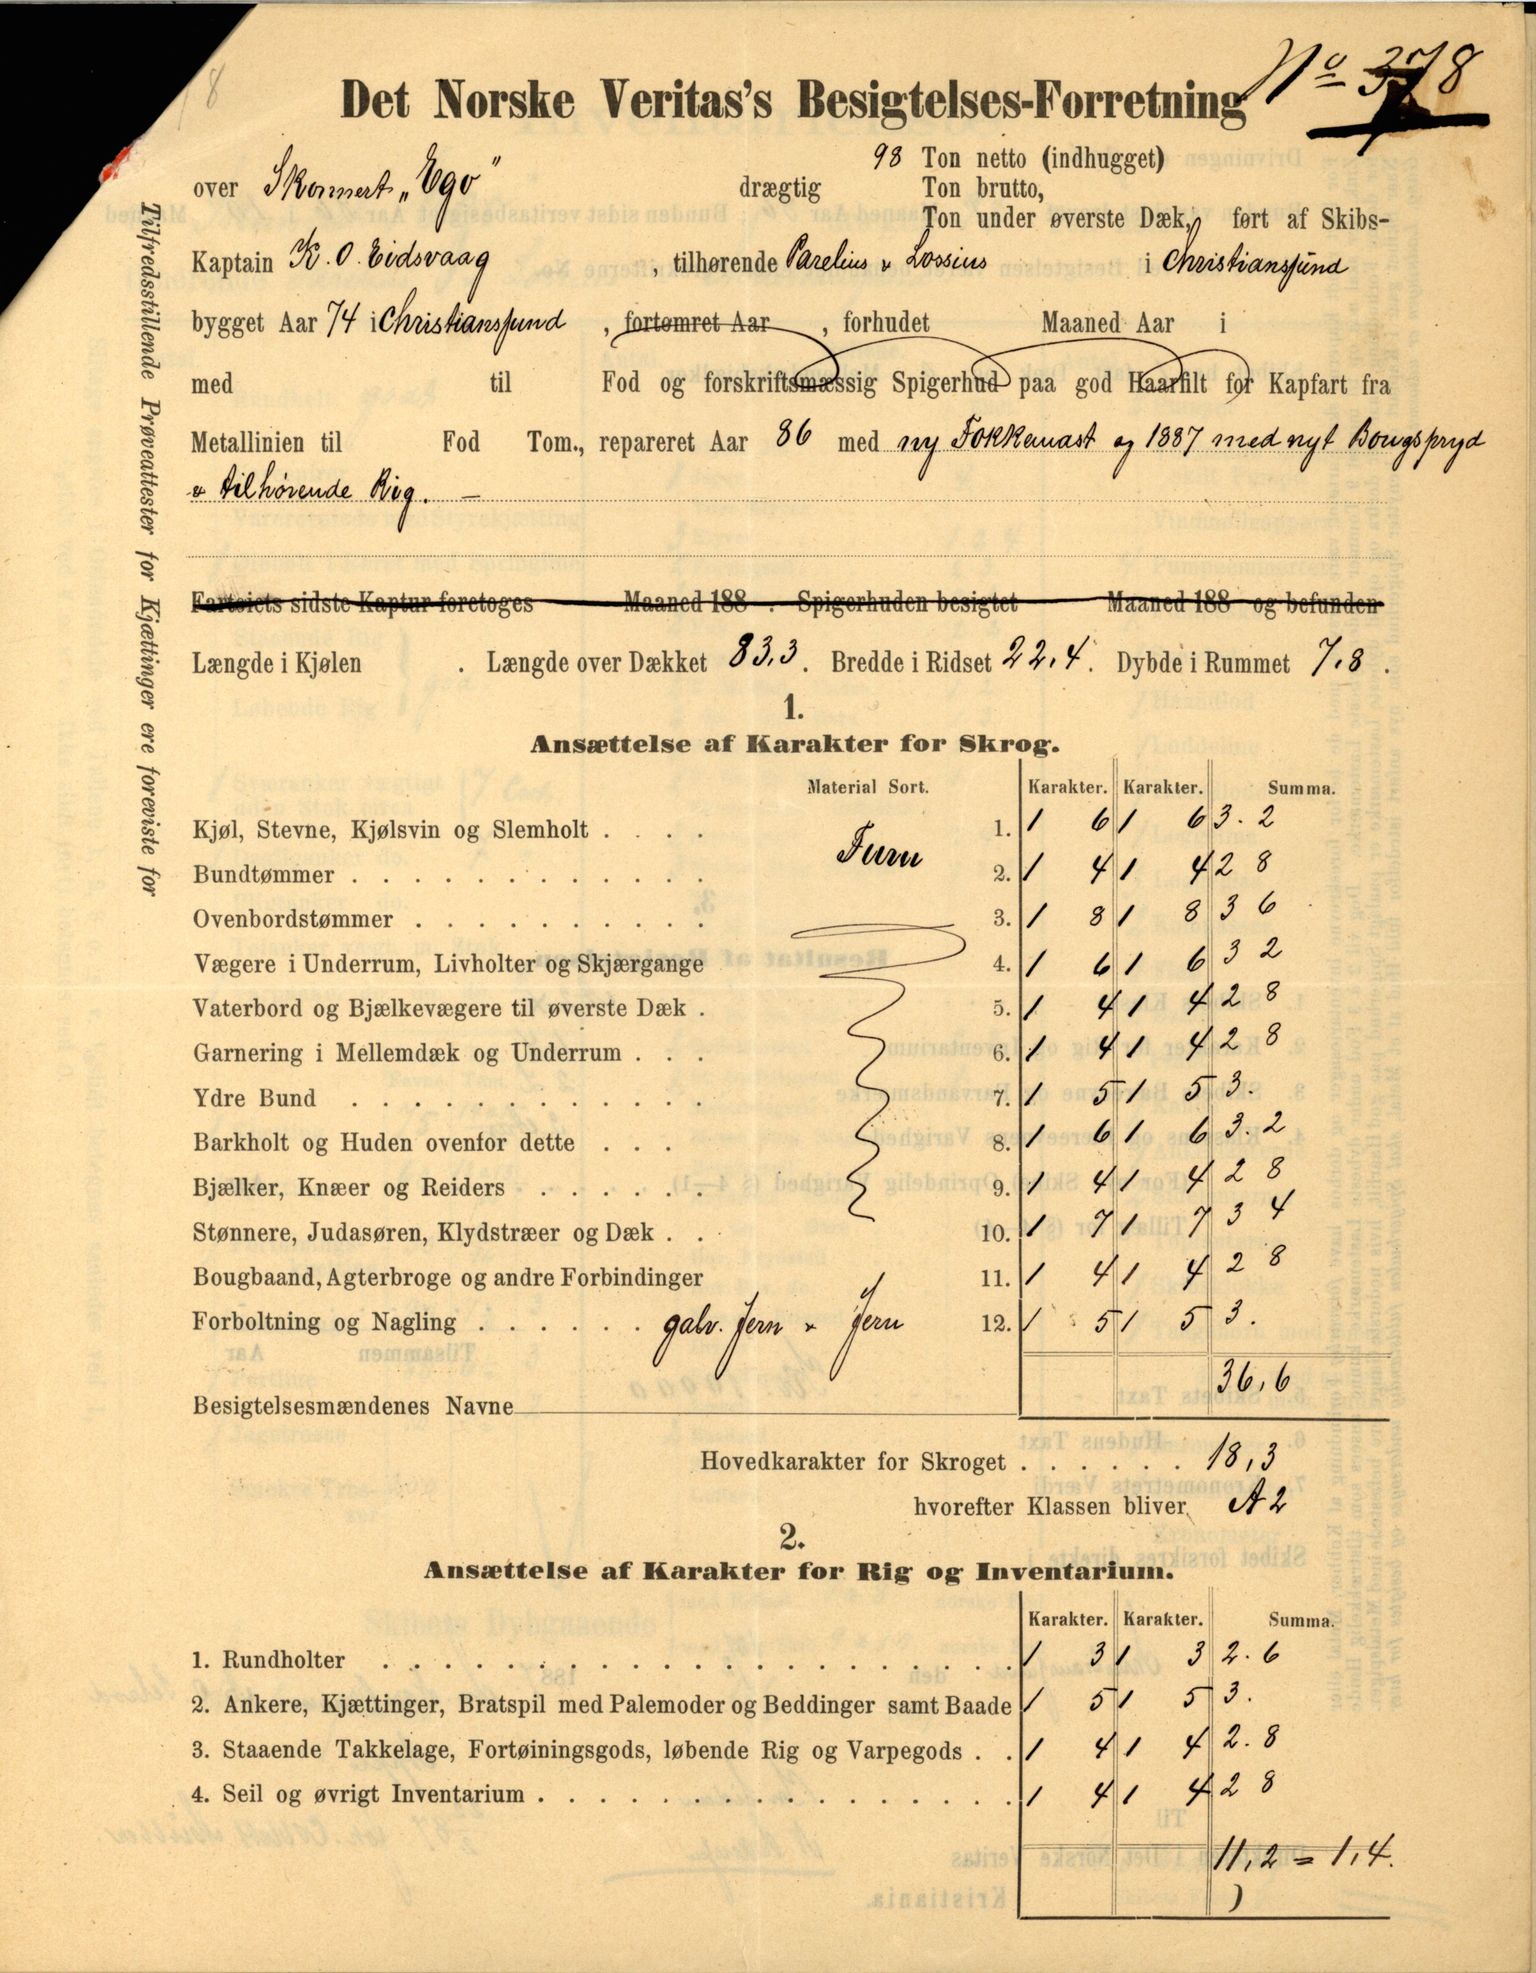 No 378
Det Norske Veritas's Besigtelses-Forretning
98 Ton netto (indhugget)
over Skonnert „Ego" drægtig Ton brutto,
Ton under øverste Dæk, ført af Skibs-
Kaptain K. O. Eidsvaag, tilhørende Parelius & Lossius i Christianssund
bygget Aar 74 i Christianssund, fortømret Aar, forhudet Maaned Aar i
med til Fod og forskriftsmæssig Spigerhud paa god Haarfilt for Kapfart fra
Metallinien til Fod Tom., repareret Aar 86 med ny Fokkemast og 1887 med nyt Bougspryd
& tilhørende Rig. —
Fartøiets sidste Kaptur foretoges Maaned 188 . Spigerhuden besigtet Maaned 188 og befunden
Længde i Kjølen . Længde over Dækket 83,3. Bredde i Ridset 22,4. Dybde i Rummet 7,8.
1.
Ansættelse af Karakter for Skrog.
Material Sort. Karakter. Karakter. Summa.
Kjøl, Stevne, Kjølsvin og Slemholt . . . . Furu 1. 1 6 1 6 3.2
Bundtømmer . . . . . . . . . . . . . 2. 1 4 1 4 2 8
Ovenbordstømmer . . . . . . . . . . 3. 1 8 1 8 3 6
Vægere i Underrum, Livholter og Skjærgange 4. 1 6 1 6 3 2
Vaterbord og Bjælkevægere til øverste Dæk . 5. 1 4 1 4 2 8
Garnering i Mellemdæk og Underrum . . . 6. 1 4 1 4 2 8
Ydre Bund . . . . . . . . . . . . . 7. 1 5 1 5 3.
Barkholt og Huden ovenfor dette . . . 8. 1 6 1 6 3.2
Bjælker, Knæer og Reiders . . . . . . 9. 1 4 1 4 2 8
Stønnere, Judasøren, Klydstræer og Dæk . . 10. 1 7 1 7 3 4
Bougbaand, Agterbroge og andre Forbindinger 11. 1 4 1 4 2 8
Forboltning og Nagling . . . . . . galv. Jern & Jern 12. 1 5 1 5 3.
36,6
Besigtelsesmændenes Navne
Hovedkarakter for Skroget . . . . . . 18,3
hvorefter Klassen bliver A2
2.
Ansættelse af Karakter for Rig og Inventarium.
Karakter. Karakter. Summa.
1. Rundholter . . . . . . . . . . . . . . . . . . . . . 1 3 1 3 2.6
2. Ankere, Kjættinger, Bratspil med Palemoder og Beddinger samt Baade 1 5 1 5 3.
3. Staaende Takkelage, Fortøiningsgods, løbende Rig og Varpegods . . 1 4 1 4 2.8
4. Seil og øvrigt Inventarium . . . . . . . . . . . . . . . . 1 4 1 4 2 8
11,2 = 1,4.
Tilfredsstillende Prøveattester for Kjættinger ere foreviste for